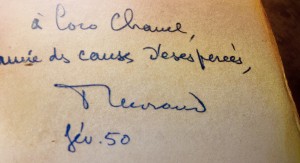 à Coco Chanel,
amie ds causes désespérées,
P Morand
fév. 50